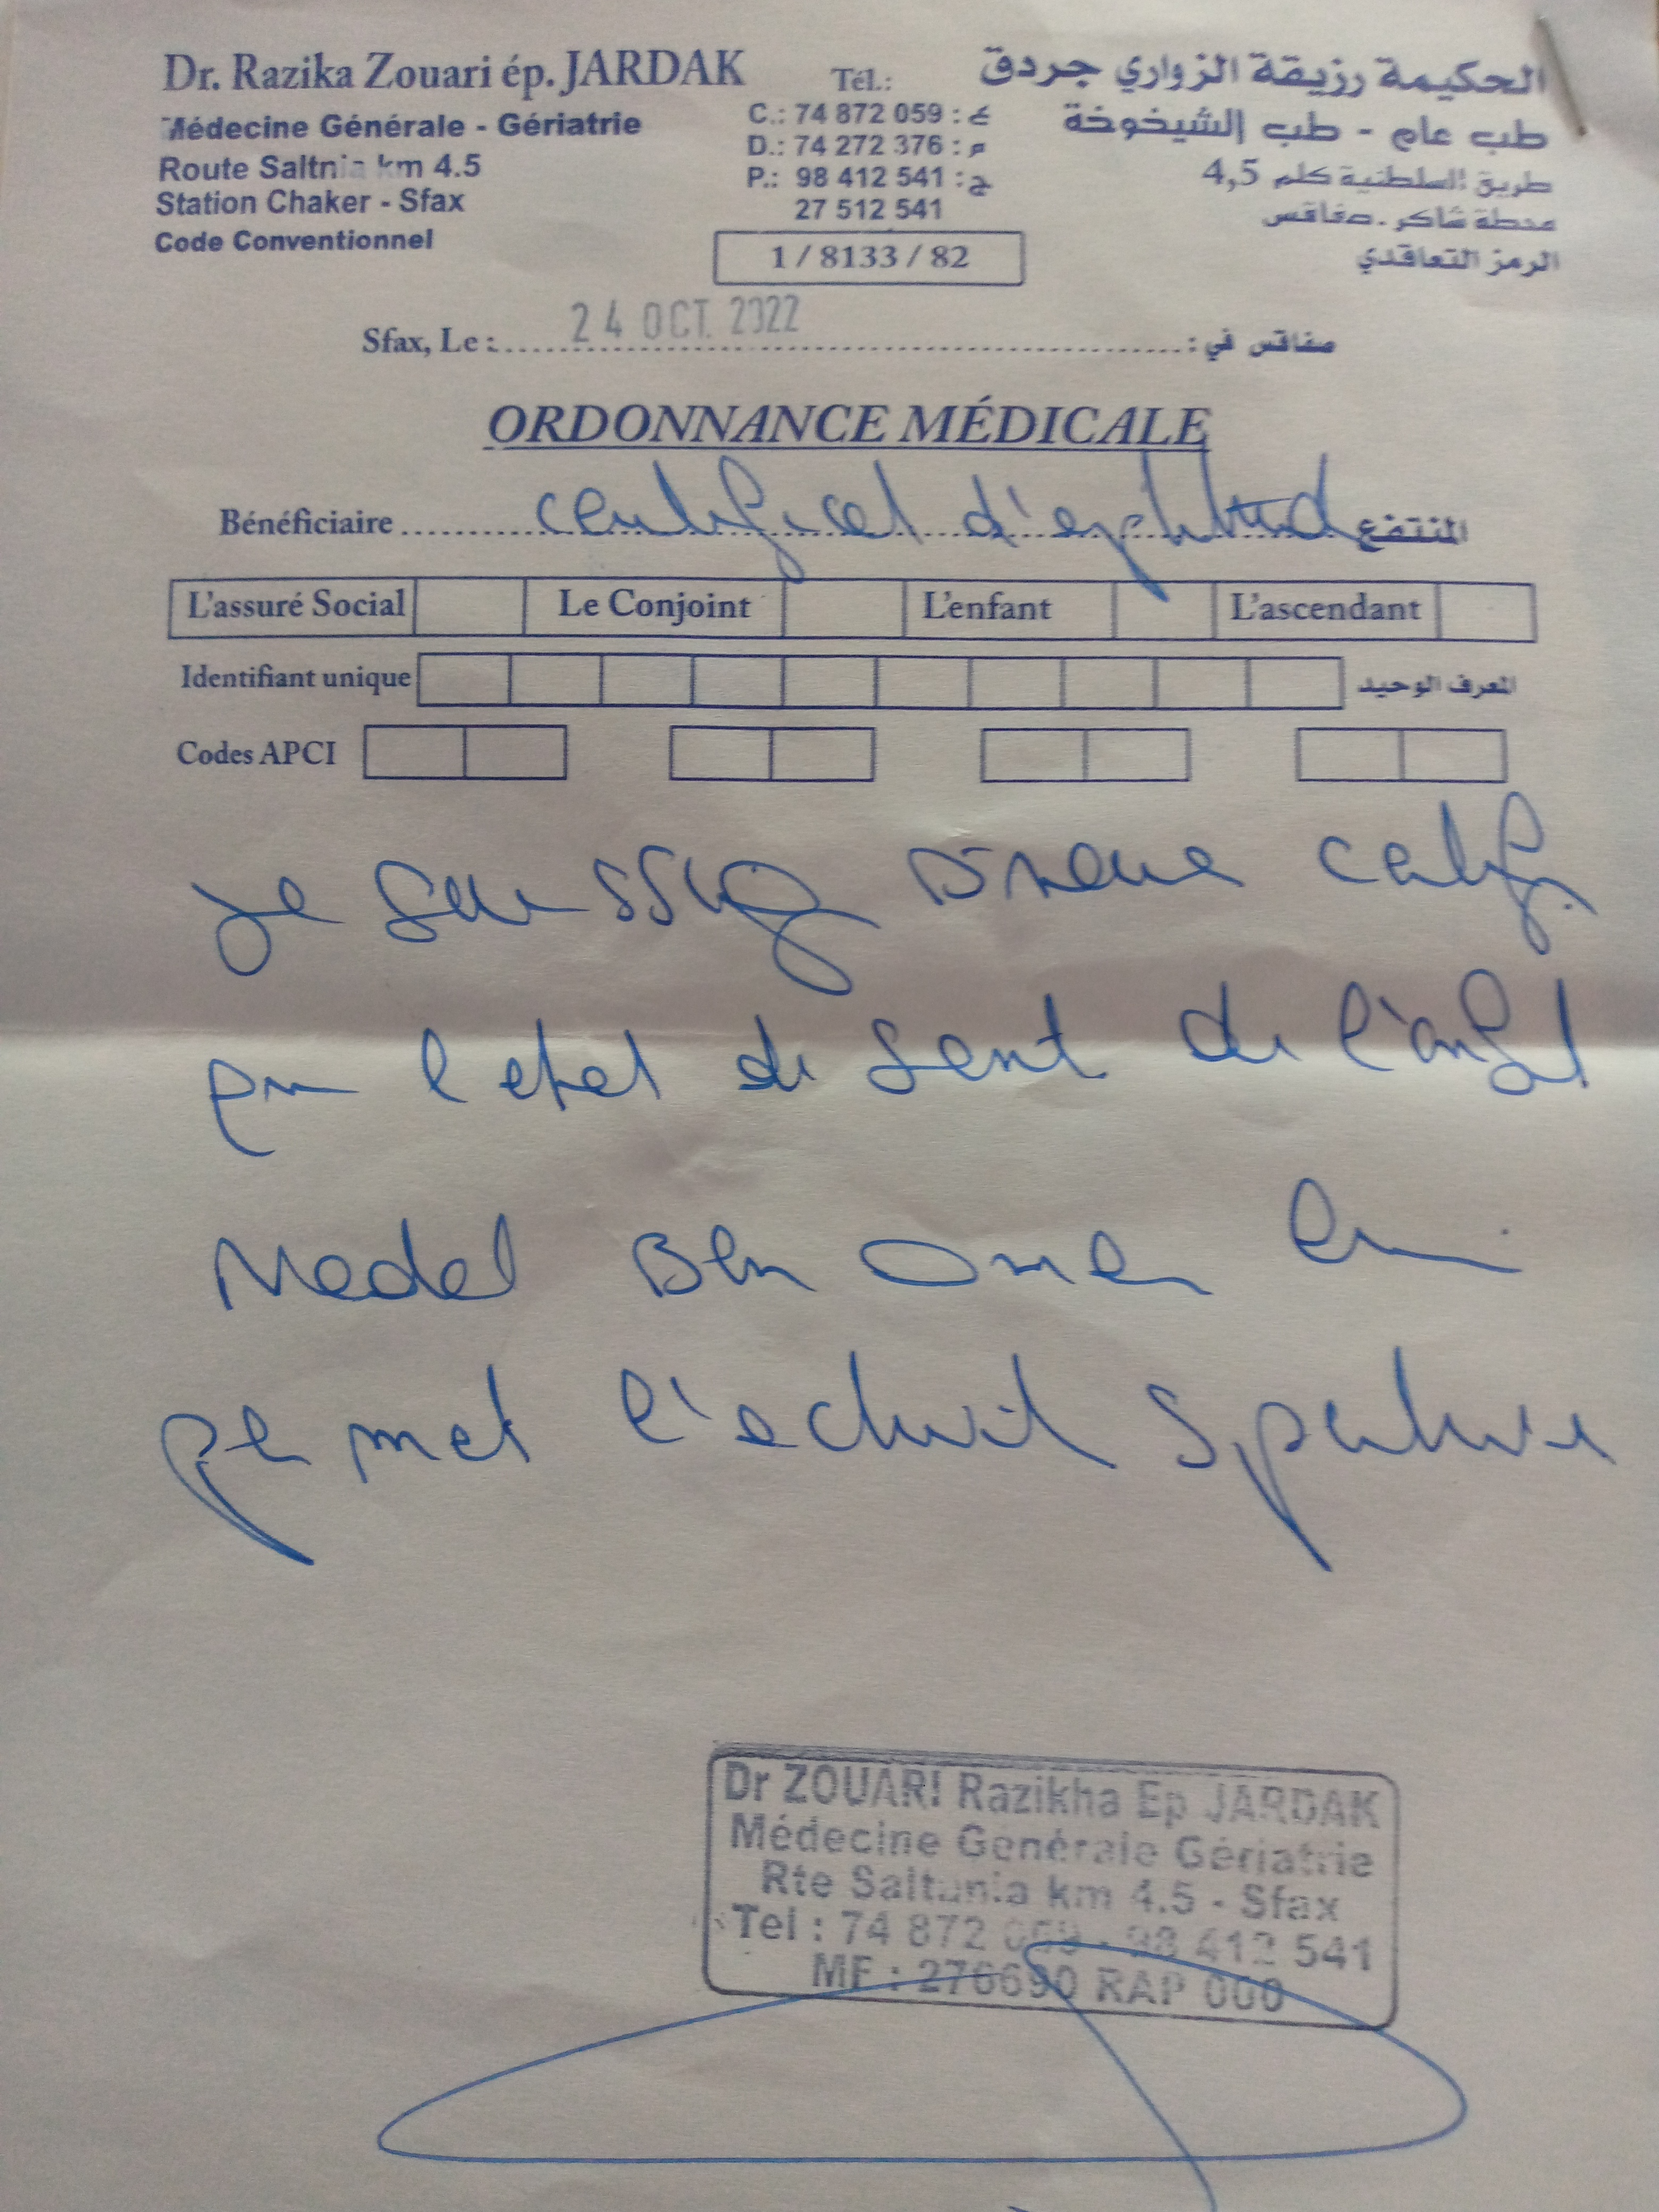 Dr. Razika Zouari ép. JARDAK
Médecine Générale - Gériatrie
Route Saltnia km 4.5
Station Chaker - Sfax
Code Conventionnel
Tél.:
C.: 74 872 059 : ع
D.: 74 272 376 : م
P.: 98 412 541 : ج
27 512 541
1 / 8133 / 82
الحكيمة رزيقة الزواري جردق
طب عام - طب الشيخوخة
طريق السلطنية كلم 4,5
محطة شاكر - صفاقس
الرمز التعاقدي
Sfax, Le : 24 OCT. 2022 صفاقس في :
ORDONNANCE MÉDICALE
Bénéficiaire certificat d'aptitud المنتفع
L'assuré Social Le Conjoint L'enfant L'ascendant
Identifiant unique المعرف الوحيد
Codes APCI
je soussigné certifi
l'etat de sant de l'enfant
Ben Omar lui
permet l'activit sportive
Dr ZOUARI Razikha Ep JARDAK
Médecine Générale Gériatrie
Rte Saltania km 4.5 - Sfax
Tel : 74 872 059 - 98 412 541
MF : 276690 RAP 000